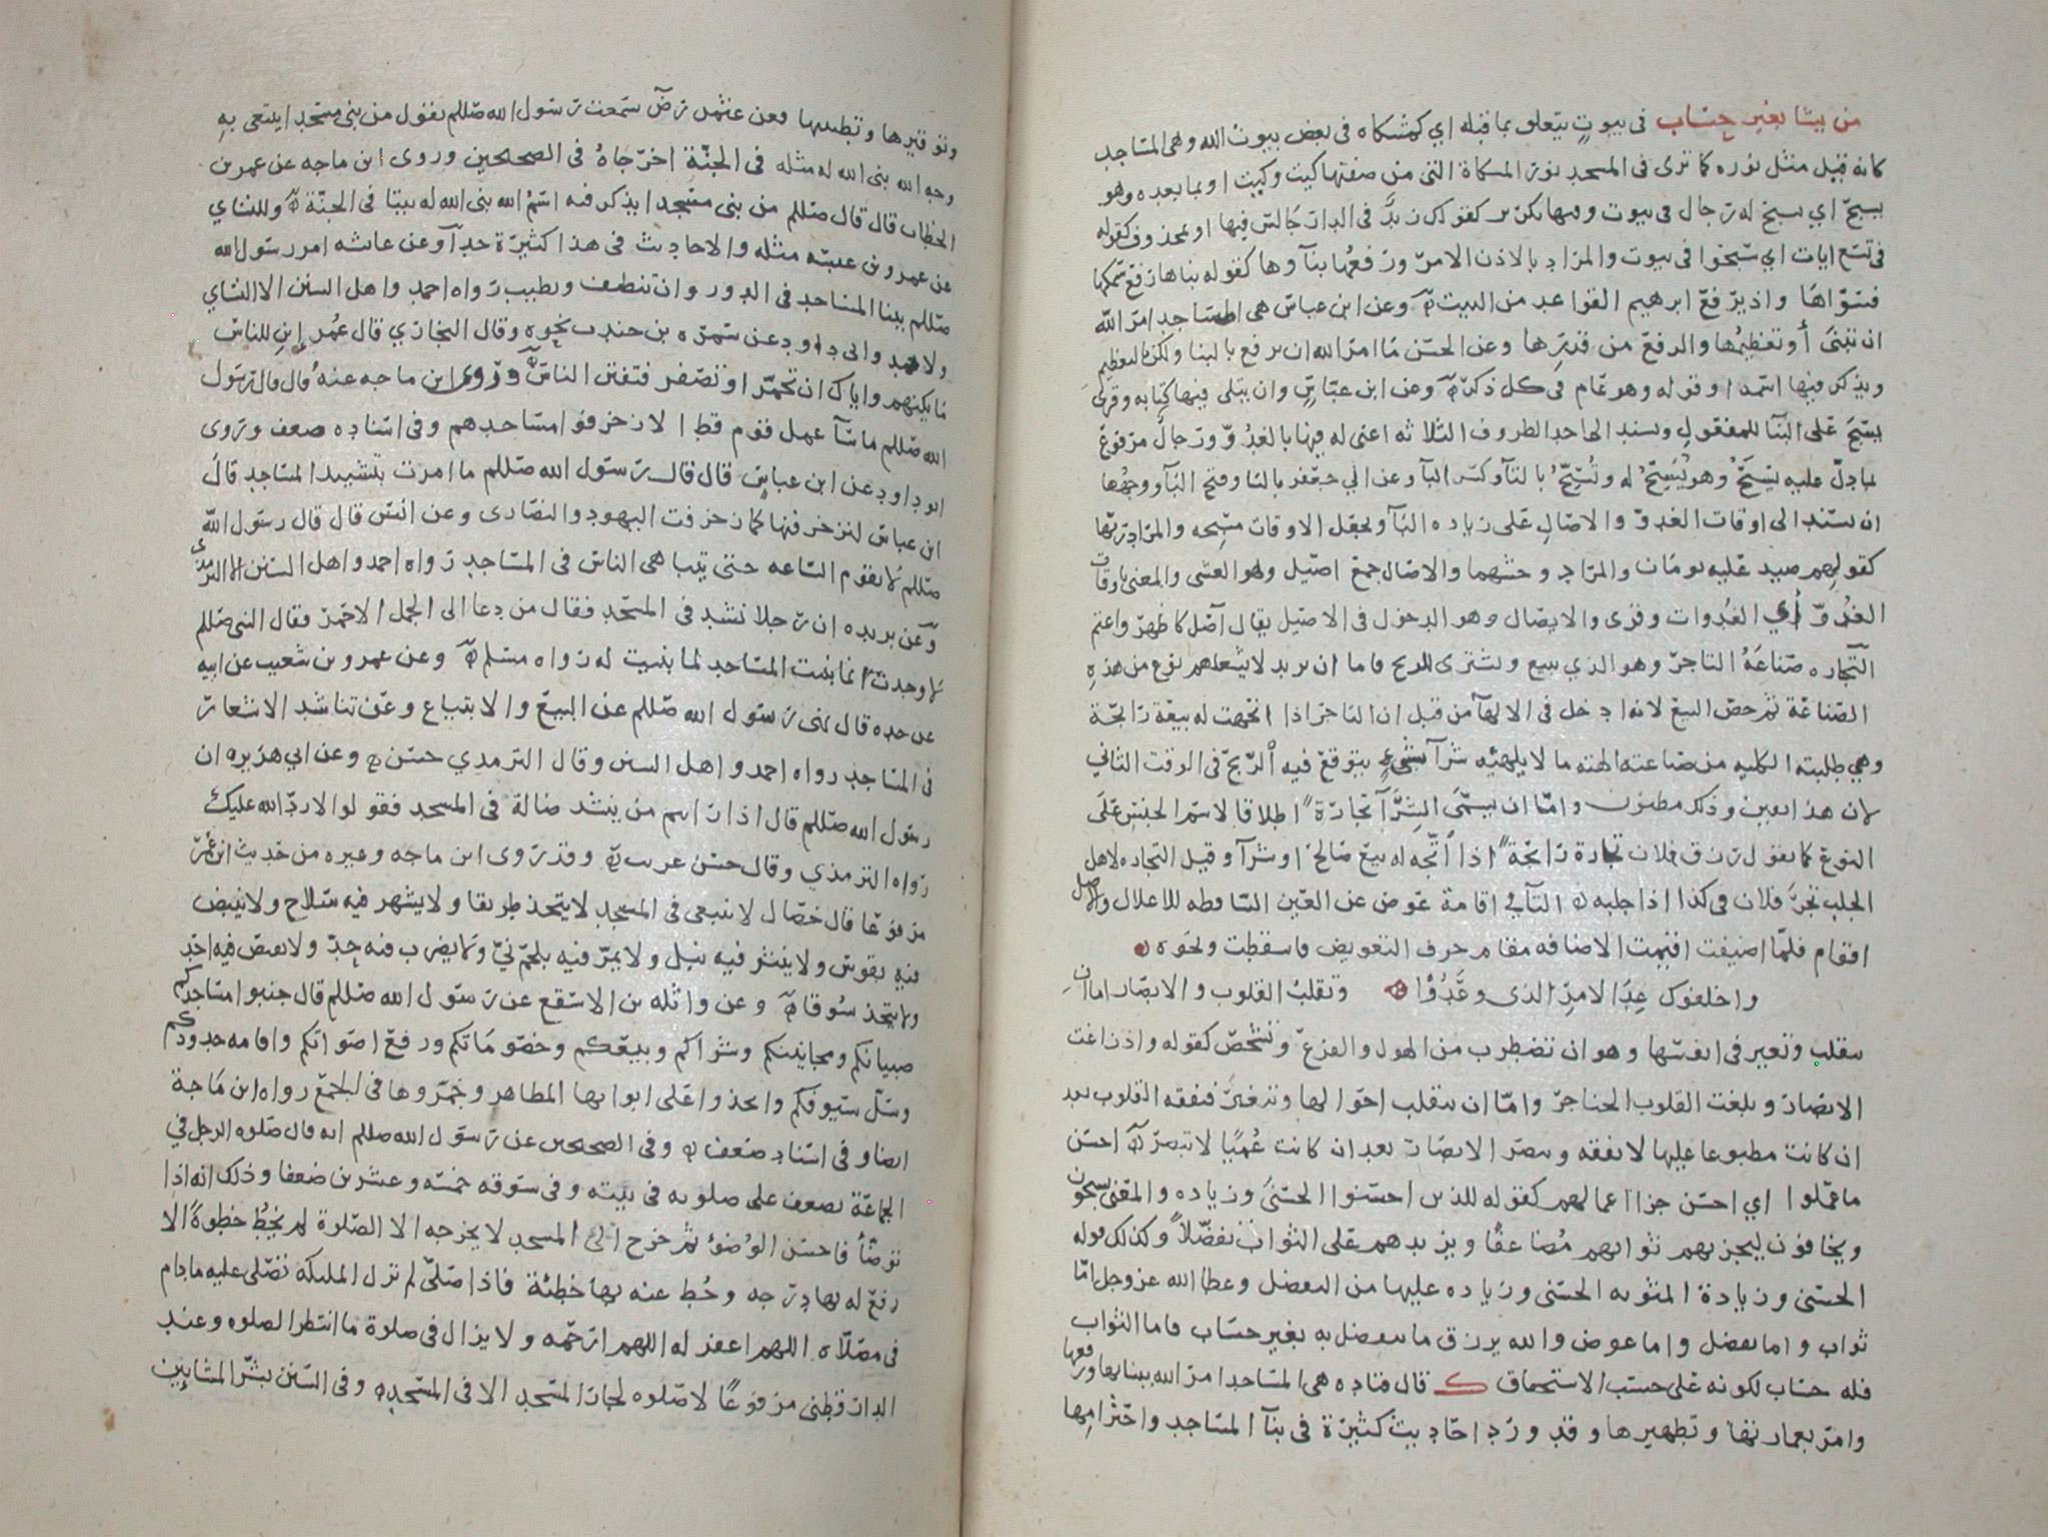 من يشا بغير حساب في بيوت يتعلق بما قبله اي كمشكاه في بعض بيوت الله وهي المساجد
كانه قيل مثل نوره كما ترى في المسجد نور المشكاة التي من صفتها كيت وكيت او بما بعده وهو
يسبح اي يسبح له رجال في بيوت وفيها تكرير كقولك زيد في الدار جالس فيها او بمحذوف كقوله
في تسع ايات اي سبحوا في بيوت والمراد بالاذن الامر ورفعها بنآوها كقوله بناها رفع سمكها
فسواها واذ يرفع ابرهيم القواعد من البيت وعن ابن عباس هي المساجد امر الله
ان تبنى أو تعظيمها والرفع من قدرها وعن الحسن ما امر الله ان ترفع بالبنا ولكن بالتعظيم
ويذكر فيها اسمه اوقوله وهو عام في كل ذكر وعن ابن عباس وان يتلى فيها كتابه وقرئ
يسبح على البنآ للمفعول ويسند الى احد الظروف الثلاثه اعني له فيها بالغدو ورجال مرفوع
بما دل عليه يسبح وهو يسبح له وتسبح بالتآ وكسر البآ وعن ابي جعفر بالتا وفتح البآ ووجهها
ان يسند الى اوقات الغدو والاصال على زياده البآ وتجعل الاوقات مسبحه والمراد ربها
كقولهم صيد عليه يومان والمراد وحشهما والاصال جمع اصيل وهو العشي والمعنى باوقات
الغدو أي الغدوات وقرى والايصال وهو الدخول في الاصيل يقال آصل كاظهر واعتم
التجاره صناعة التاجر وهو الذي يبيع ويشترى للربح فاما ان يريد لا يشغلهم نوع من هذه
الصناعة ثم خص البيع لانه ادخل في الالهآ من قبل ان التاجر اذا اتجهت له بيعة رابحة
وهي طلبته الكليه من صناعته الهته ما لا يلهيه شرآ شيء يتوقع فيه الربح في الوقت الثاني
لان هذا يقين وذلك مظنون واما ان يسمى الشرآ تجارة اطلاقا لاسم الجنس على
النوع كما يقول رزق فلان تجارة رابحة اذا اتجه له بيع صالح او شرآ وقيل التجاره لاهل
الجلب تجر فلان في كذا اذا جلبه التآ في اقامة عوض عن العين الساقطه للاعلال والاصل
اقوام فلما اضيفت اقيمت الاضافه مقام حرف التعويض فاسقطت ونحوه
واخلفوك عدا الامر الذى وعدوا وتقلب القلوب والابصار اما ان
تتقلب وتتغير في انفسها وهو ان تضطرب من الهول والفزع وتشخص كقوله واذ زاغت
الابصار وبلغت القلوب الحناجر واما ان يتقلب احوالها وتتغير فتفقه القلوب بعد
ان كانت مطبوعا عليها لا تفقه وتبصر الابصار بعد ان كانت عميا لا تبصر احسن
ما عملوا اي احسن جزا اعمالهم كقوله للذين احسنوا الحسنى وزياده والمعنى يسبحون
ويخافون ليجزيهم ثوابهم مضاعفا ويزيدهم على الثواب تفضلا وكذلك قوله
الحسنى وزيادة المثوبه الحسنى وزياده عليها من التفضل وعطا الله عز وجل اما
ثواب واما تفضل واما عوض والله يرزق ما يتفضل به بغير حساب فاما الثواب
فله حساب لكونه على حسب الاستحقاق ك قال قتاده هي المساجد امر الله ببنايها ورفعها
وامر بعمارتها وتطهيرها وقد ورد احاديث كثيرة في بنآ المساجد واحترامها
وتوقيرها وتطييبها وعن عثمن رض سمعت رسول الله صللم يقول من بنى مسجدا يبتغى به
وجه الله بنى الله له مثله في الجنة اخرجاه في الصحيحين وروى ابن ماجه عن عمر بن
الخطاب قال قال صللم من بنى مسجدا يذكر فيه اسم الله بنى الله له بيتا في الجنة وللنساي
عن عمرو بن عبسه مثله والاحاديث في هذا كثيرة جدا وعن عائشه امر رسول الله
صللم ببنا المساجد في الدور وان تنظف وتطيب رواه احمد واهل السنن الا النساي
ولاحمد وابى داود عن سمره بن جندب نحوه وقال البخاري قال عمر ابن للناس
ما يكنهم واياك ان تحمر او تصفر فتفتن الناس وروى ابن ماجه عنه قال قال رسول
الله صللم ماسآ عمل قوم قط الا زخرفوا مساجدهم وفي اسناده ضعف وروى
ابو داود عن ابن عباس قال قال رسول الله صللم ما امرت بتشييد المساجد قال
ابن عباس لتزخرفنها كما زخرفت اليهود والنصارى وعن انس قال قال رسول الله
صللم لا تقوم الساعه حتى يتباهى الناس في المساجد رواه احمد واهل السنن الا الترمذى
وعن بريده ان رجلا نشد في المسجد فقال من دعا الى الجمل الاحمر فقال النبي صللم
لا وجدت انما بنيت المساجد لما بنيت له رواه مسلم وعن عمرو بن شعيب عن ابيه
عن جده قال نهى رسول الله صللم عن البيع والابتياع وعن تناشد الاشعار
في المساجد رواه احمد واهل السنن وقال الترمذي حسن وعن ابي هريره ان
رسول الله صللم قال اذا رايتم من ينشد ضالة في المسجد فقولوا لا رد الله عليك
رواه الترمذي وقال حسن غريب وقد روى ابن ماجه وغيره من حديث ابن عمر
مرفوعا قال خصال لا تنبغى في المسجد لا يتخذ طريقا ولا يشهر فيه سلاح ولا ينبض
فيه بقوس ولا ينثر فيه نبل ولا يمر فيه بلحم نيّ ولا يضرب فيه حد ولا يقص فيه احد
ولا يتخذ سوقا وعن واثله بن الاسقع عن رسول الله صللم قال جنبوا مساجدكم
صبيانكم ومجانينكم وشراكم وبيعكم وخصوماتكم ورفع اصواتكم واقامه حدودكم
وسل سيوفكم واتخذوا على ابوابها المطاهر وجمروها في الجمع رواه ابن ماجة
ايضا وفي اسناده ضعف وفي الصحيحين عن رسول الله صللم انه قال صلوه الرجل في
الجماعة تضعف على صلوته في بيته وفي سوقه خمسه وعشرين ضعفا وذلك انه اذا
توضأ فاحسن الوضوء ثم خرج الى المسجد لا يخرجه الا الصلوة لم يخط خطوة الا
رفع له بها درجه وحط عنه بها خطيئة فاذا صلى لم تزل الملئكة تصلى عليه ما دام
في مصلاه اللهم اغفر له اللهم ارحمه ولا يزال في صلوة ما انتظر الصلوه وعند
الدارقطنى مرفوعا لا صلوه لجار المسجد الا في المسجد وفي السنن بشر المشايين